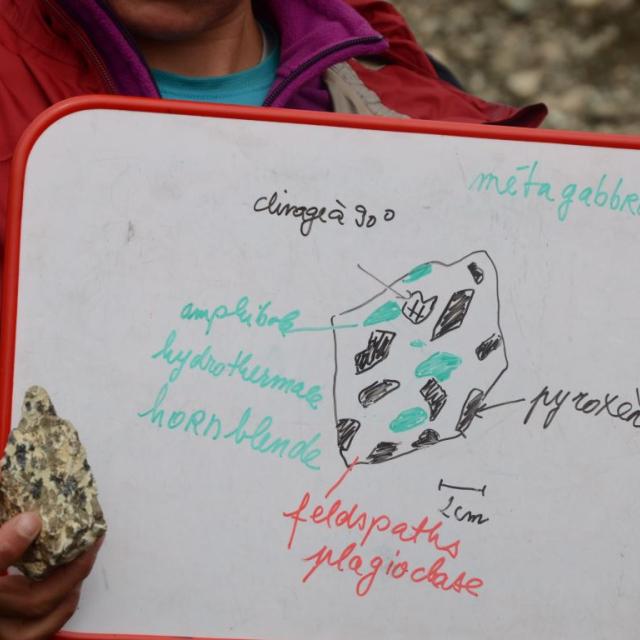 métagabbro
clivage à 90°
amphibole
hydrothermale
hornblende
pyroxèn
1cm
feldspaths
plagioclase